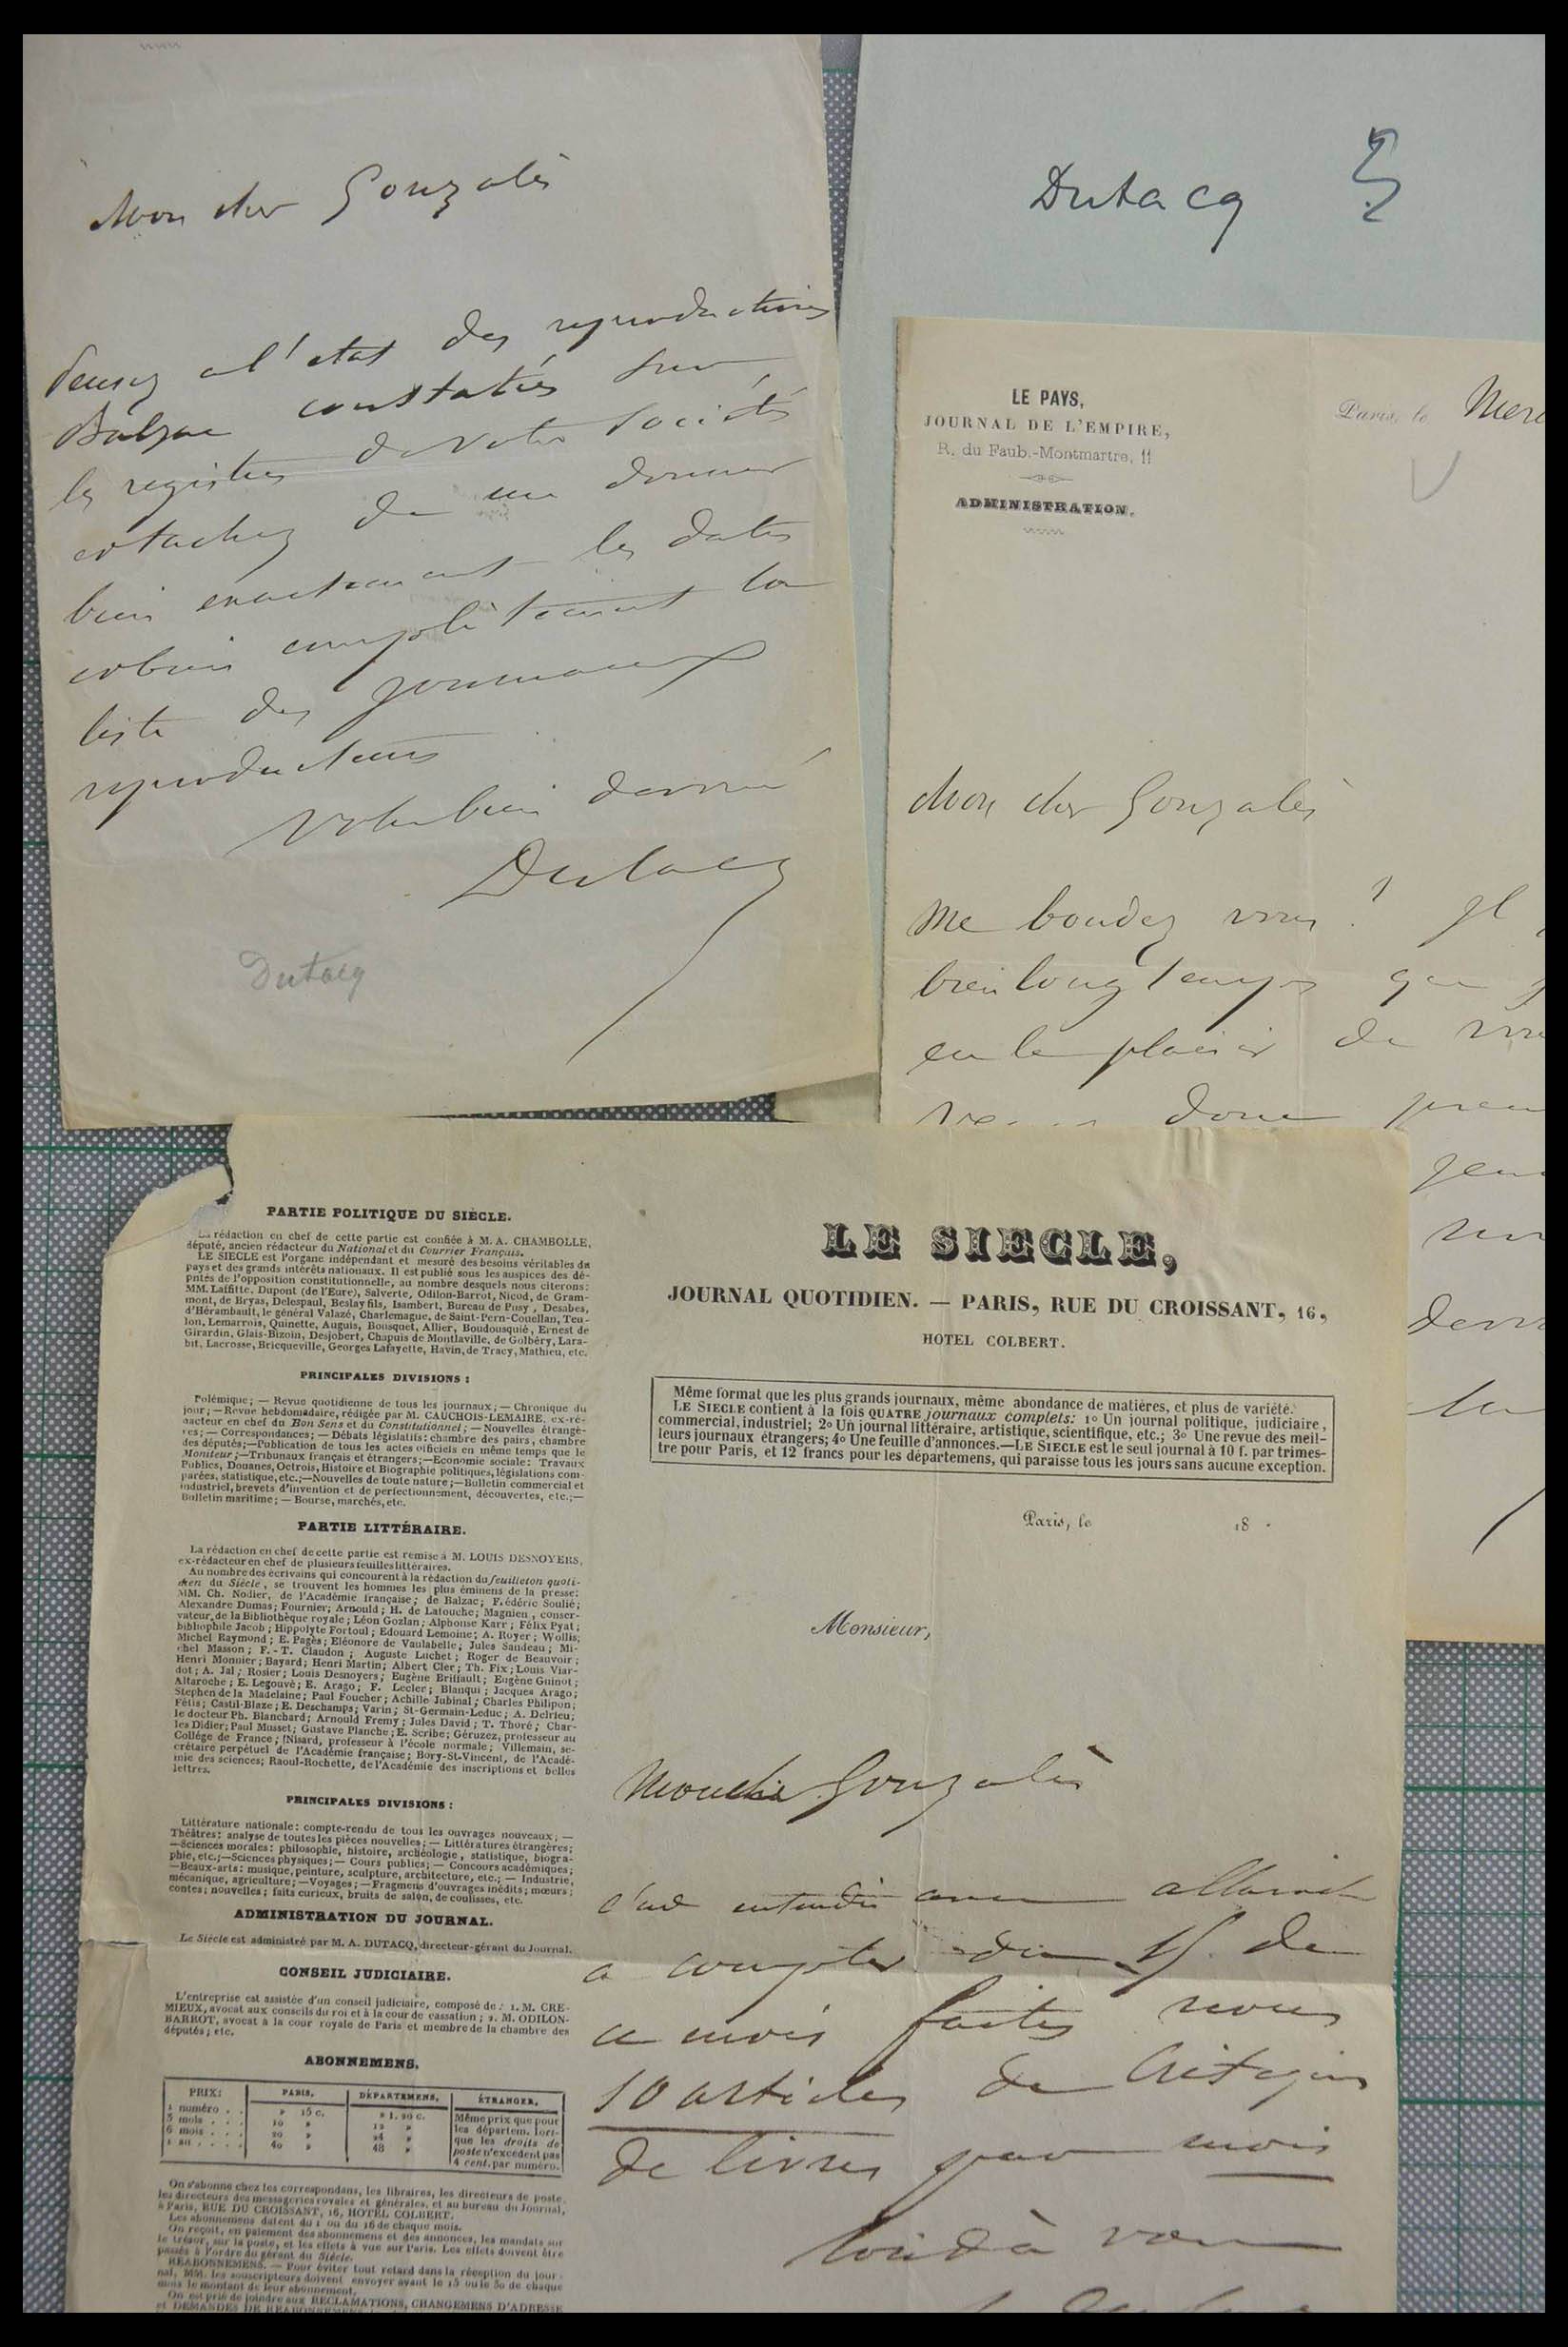 Mon cher Gonzalès
Pensez a l'etat des reproductions
Balzac constatés sur
les registres de votre Société
et tachez de me donner
bien exactement les dates
et bien complètement la
liste des journaux
reproducteurs
Votre bien dévoué
Dutacq
Dutacq
Dutacq
LE PAYS,
JOURNAL DE L'EMPIRE,
R. du Faub.-Montmartre, 11
ADMINISTRATION.
Paris, le Merc
Mon cher Gonzalès
Me boudez vous ? Il
bien longtemps que j
eu le plaisir de
donc
PARTIE POLITIQUE DU SIÈCLE.
La rédaction en chef de cette partie est confiée à M. A. CHAMBOLLE,
député, ancien rédacteur du National et du Courrier Français.
LE SIECLE est l'organe indépendant et mesuré des besoins véritables du
pays et des grands intérêts nationaux. Il est publié sous les auspices des dé-
putés de l'opposition constitutionnelle, au nombre desquels nous citerons:
MM. Laffitte, Dupont (de l'Eure), Salverte, Odilon-Barrot, Nicod, de Gram-
mont, de Bryas, Delespaul, Beslay fils, Isambert, Bureau de Pusy, Desabes,
d'Hérambault, le général Valazé, Charlemagne, de Saint-Pern-Couellan, Teu-
lon, Lemarrois, Quinette, Auguis, Bousquet, Allier, Boudousquié, Ernest de
Girardin, Glais-Bizoin, Desjobert, Chapuis de Montlaville, de Golbéry, Lara-
bit, Lacrosse, Bricqueville, Georges Lafayette, Havin, de Tracy, Mathieu, etc.
PRINCIPALES DIVISIONS :
Polémique; — Revue quotidienne de tous les journaux; — Chronique du
jour; — Revue hebdomadaire, rédigée par M. CAUCHOIS-LEMAIRE, ex-ré-
dacteur en chef du Bon Sens et du Constitutionnel; — Nouvelles étrangè-
res; — Correspondances; — Débats législatifs: chambre des pairs, chambre
des députés; — Publication de tous les actes officiels en même temps que le
Moniteur; — Tribunaux français et étrangers; — Economie sociale: Travaux
Publics, Douanes, Octrois, Histoire et Biographie politiques, législations com-
parées, statistique, etc.; — Nouvelles de toute nature; — Bulletin commercial et
industriel, brevets d'invention et de perfectionnement, découvertes, etc.; —
Bulletin maritime; — Bourse, marchés, etc.
PARTIE LITTÉRAIRE.
La rédaction en chef de cette partie est remise à M. LOUIS DESNOYERS,
ex-rédacteur en chef de plusieurs feuilles littéraires.
Au nombre des écrivains qui concourent à la rédaction du feuilleton quoti-
dien du Siècle, se trouvent les hommes les plus éminens de la presse:
MM. Ch. Nodier, de l'Académie française; de Balzac; Frédéric Soulié;
Alexandre Dumas; Fournier; Arnould; H. de Latouche; Magnien, conser-
vateur de la Bibliothèque royale; Léon Gozlan; Alphonse Karr; Félix Pyat;
bibliophile Jacob; Hippolyte Fortoul; Edouard Lemoine; A. Royer; Wollis;
Michel Raymond; E. Pagès; Eléonore de Vaulabelle; Jules Sandeau; Mi-
chel Masson; F.-T. Claudon; Auguste Luchet; Roger de Beauvoir;
Henri Monnier; Bayard; Henri Martin; Albert Cler; Th. Fix; Louis Viar-
dot; A. Jal; Rosier; Louis Desnoyers; Eugène Briffault; Eugène Guinot;
Altaroche; E. Legouvé; E. Arago; F. Lecler; Blanqui; Jacques Arago;
Stephen de la Madelaine; Paul Foucher; Achille Jubinal; Charles Philipon;
Fétis; Castil-Blaze; E. Deschamps; Varin; St-Germain-Leduc; A. Delrieu;
le docteur Ph. Blanchard; Arnould Fremy; Jules David; T. Thoré; Char-
les Didier; Paul Musset; Gustave Planche; E. Scribe; Géruzez, professeur au
Collége de France; Nisard, professeur à l'école normale; Villemain, se-
crétaire perpétuel de l'Académie française; Bory-St-Vincent, de l'Acadé-
mie des sciences; Raoul-Rochette, de l'Académie des inscriptions et belles
lettres.
PRINCIPALES DIVISIONS :
Littérature nationale: compte-rendu de tous les ouvrages nouveaux; —
Théâtres: analyse de toutes les pièces nouvelles; — Littératures étrangères;
—Sciences morales: philosophie, histoire, archéologie, statistique, biogra-
phie, etc.; —Sciences physiques; — Cours publics; — Concours académiques;
—Beaux-arts: musique, peinture, sculpture, architecture, etc.; — Industrie,
mécanique, agriculture; —Voyages; —Fragmens d'ouvrages inédits; mœurs;
contes; nouvelles; faits curieux, bruits de salon, de coulisses, etc.
ADMINISTRATION DU JOURNAL.
Le Siècle est administré par M. A. DUTACQ, directeur-gérant du Journal.
CONSEIL JUDICIAIRE.
L'entreprise est assistée d'un conseil judiciaire, composé de : 1. M. CRE-
MIEUX, avocat aux conseils du roi et à la cour de cassation; 2. M. ODILON-
BARROT, avocat à la cour royale de Paris et membre de la chambre des
députés; etc.
ABONNEMENS.
PRIX: PARIS. DÉPARTEMENS. ÉTRANGER.
1 numéro . . » 15 c. » 1. 20 c. Même prix que pour
3 mois . . . 10 » 12 » les départem. lors-
6 mois . . . 20 » 24 » que les droits de
1 an . . . . 40 » 48 » poste n'excèdent pas
4 cent. par numéro.
On s'abonne chez les correspondans, les libraires, les directeurs de poste,
les directeurs des messageries royales et générales, et au bureau du Journal,
à Paris, RUE DU CROISSANT, 16, HOTEL COLBERT.
Les abonnemens datent du 1 ou du 16 de chaque mois.
On reçoit, en paiement des abonnemens et des annonces, les mandats sur
le trésor, sur la poste, et les effets à vue sur Paris. Les effets doivent être
passés à l'ordre du gérant du Siècle.
RÉABONNEMENS. — Pour éviter tout retard dans la réception du jour-
nal, MM. les souscripteurs doivent envoyer avant le 15 ou le 30 de chaque
mois le montant de leur abonnement.
On est prié de joindre aux RECLAMATIONS, CHANGEMENS D'ADRESSE
et DEMANDES DE REABONNEMENS
LE SIECLE,
JOURNAL QUOTIDIEN. — PARIS, RUE DU CROISSANT, 16,
HOTEL COLBERT.
Même format que les plus grands journaux, même abondance de matières, et plus de variété.
LE SIECLE contient à la fois QUATRE journaux complets: 1º Un journal politique, judiciaire,
commercial, industriel; 2º Un journal littéraire, artistique, scientifique, etc.; 3º Une revue des meil-
leurs journaux étrangers; 4º Une feuille d'annonces.—LE SIECLE est le seul journal à 10 f. par trimes-
tre pour Paris, et 12 francs pour les départemens, qui paraisse tous les jours sans aucune exception.
Paris, le 18 .
Monsieur,
Mon cher Gonzalès
c'est entendu avec
a compter du 15 de
ce mois faites nous
10 articles de Critique
de livres par mois
tout à vous